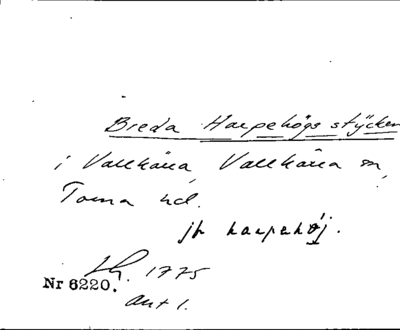 Breda Harpehögs stÿcken
i Vallkärra, Vallkärra sn,
Torna hd.
jfr harpehöj.
LK. 1775
Nr 6220.
akt 1.